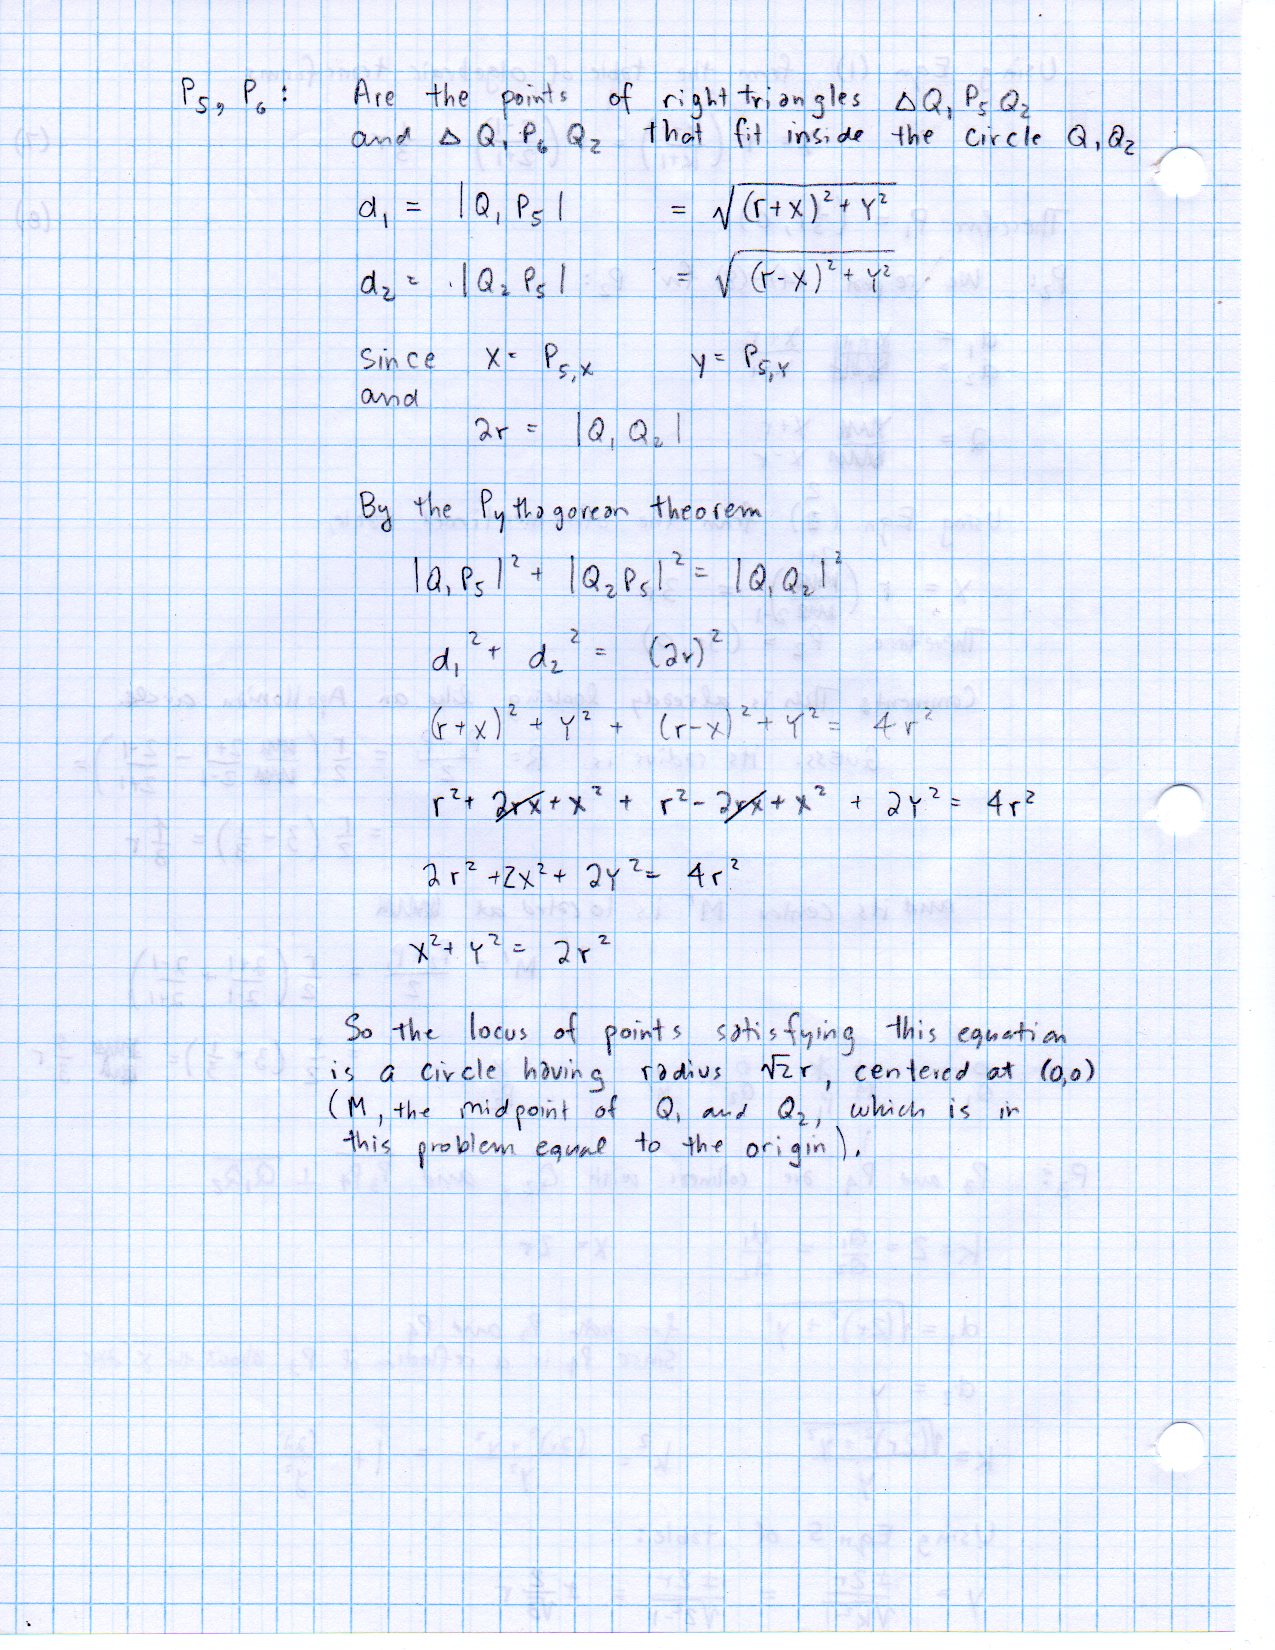 P₅, P₆: Are the points of right triangles △Q₁P₅Q₂
and △Q₁P₆Q₂ that fit inside the circle Q₁Q₂
d₁ = |Q₁P₅| = √((r+x)²+Y²)
d₂ = |Q₂P₅| = √((r-x)²+Y²)
Since x = P₅,ₓ y = P₅,Y
and
2r = |Q₁Q₂|
By the Pythagorean theorem
|Q₁P₅|² + |Q₂P₅|² = |Q₁Q₂|²
d₁² + d₂² = (2r)²
(r+x)² + Y² + (r-x)² + Y² = 4r²
r² + 2rx + x² + r² - 2rx + x² + 2Y² = 4r²
2r² + 2x² + 2Y² = 4r²
x² + Y² = 2r²
So the locus of points satisfying this equation
is a circle having radius √2r, centered at (0,0)
(M, the midpoint of Q₁ and Q₂, which is in
this problem equal to the origin).